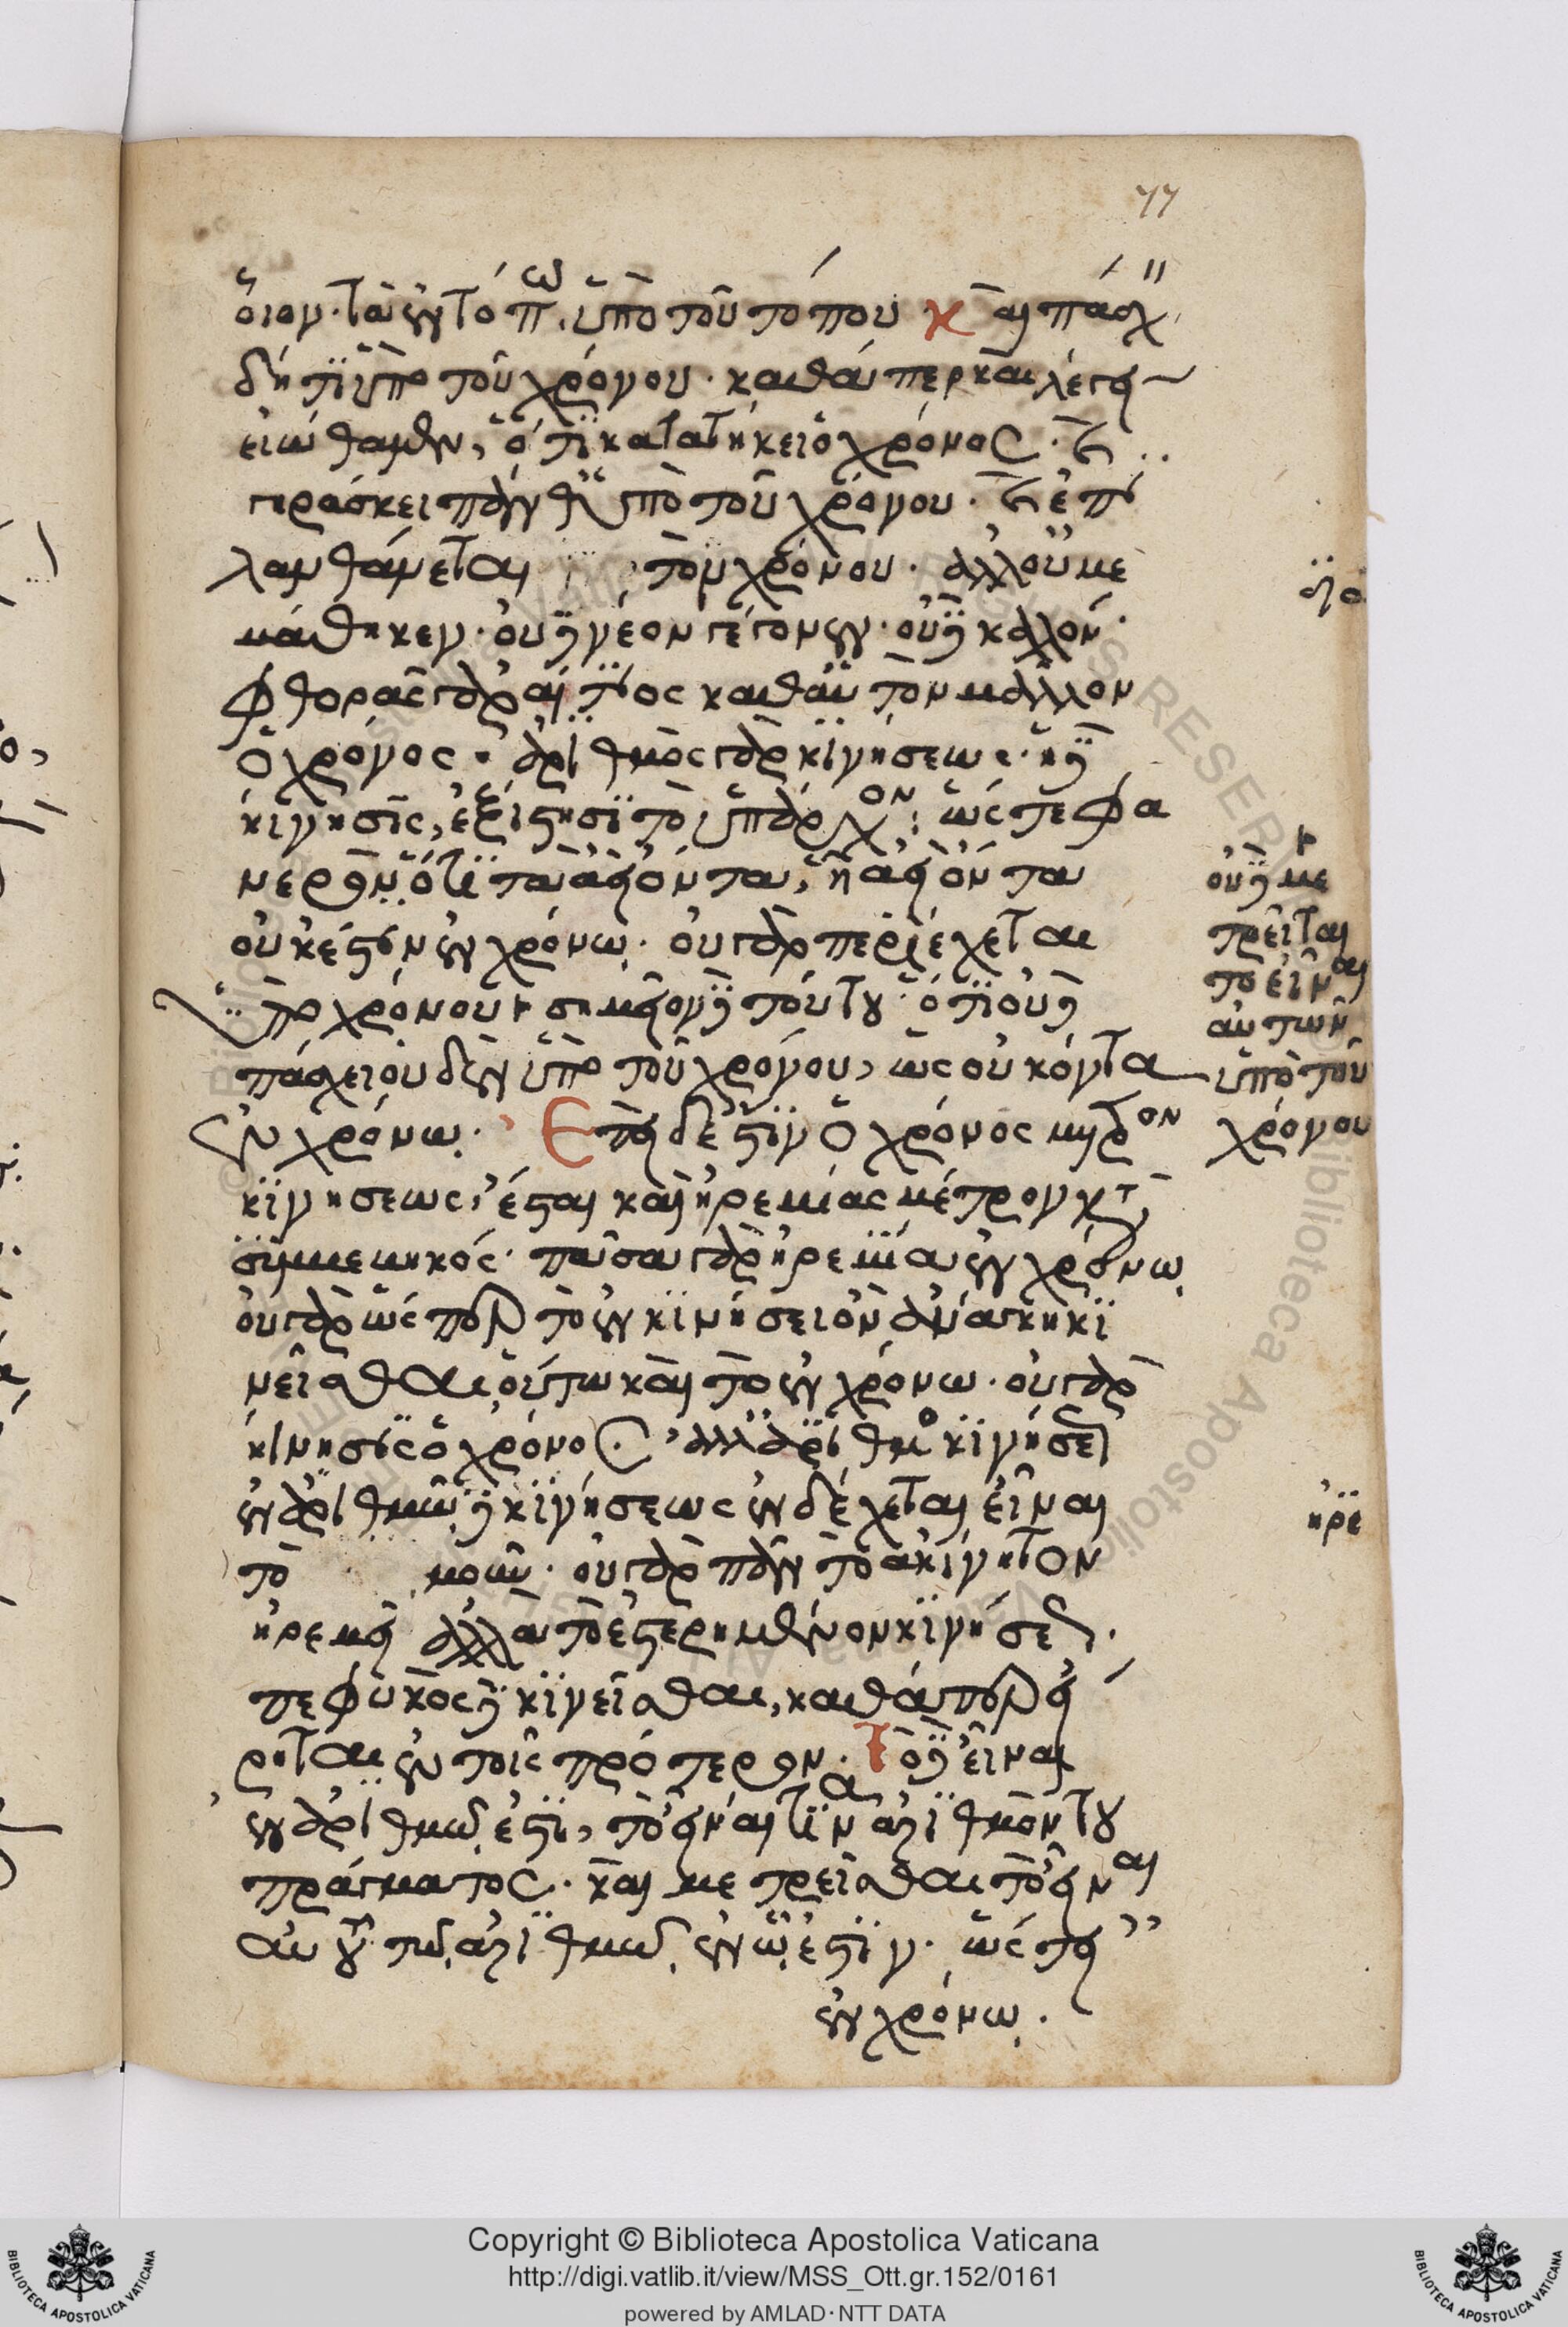 77
οἷον τὰ ἐν τόπω ὑπὸ τοῦ τόπου καὶ πάσχει
δή τι ὑπὸ τοῦ χρόνου· καθάπερ καὶ λέγειν
εἰώθαμεν, ὅτι κατατήκει ὁ χρόνος· καὶ
γηράσκει πάνθ' ὑπὸ τοῦ χρόνου· καὶ ἐπι
λανθάνεται τὸν χρόνον· ἀλλ' οὐ με
μάθηκεν· οὐδὲ νέον γέγονεν· οὐδὲ καλόν·
φθορᾶς γὰρ αἴτιος καθ' αὑτὸν μᾶλλον
ὁ χρόνος· ἀριθμὸς γὰρ κινήσεως· ἡ δὲ
κίνησις, ἐξίστησι τὸ ὑπάρχον· ὥστε φα
νερὸν ὅτι τὰ ἀεὶ ὄντα, ἧ ἀεὶ ὄντα
οὐκ ἔστιν ἐν χρόνω· οὐ γὰρ περιέχεται
ὑπὸ χρόνου σημεῖον δὲ τούτου ὅτι οὐδὲ
πάσχει οὐδὲν ὑπὸ τοῦ χρόνου, ὡς οὐκ ὄντα
ἐν χρόνω· Ἐπεὶ δέ ἐστιν ὁ χρόνος μέτρον
κινήσεως, ἔσται καὶ ἠρεμίας μέτρον κατὰ
συμβεβηκός· πᾶσα γὰρ ἠρεμία ἐν χρόνω
οὐ γὰρ ὥσπερ τὸ ἐν κινήσει ὂν ἀνάγκη κι
νεῖσθαι, οὕτω καὶ τὸ ἐν χρόνω· οὐ γὰρ
κίνησις ὁ χρόνος· ἀλλ' ἀριθμὸς κινήσεως
ἐν ἀριθμῶ δὲ κινήσεως ἐνδέχεται εἶναι
τὸ μοῦν· οὐ γὰρ πᾶν τὸ ἀκίνητον
ἠρεμεῖ ἀλλὰ τὸ ἐστερημένον κινήσεως·
πεφυκὸς δὲ κινεῖσθαι, καθάπερ εἴ
ρηται ἐν τοῖς πρότερον· Τὸ δ' εἶναι
ἐν ἀριθμῶ ἐστι, τὸ εἶναί τινα ἀριθμὸν του
πράγματος· καὶ μετρεῖσθαι τὸ εἶναι
αὐτοῦ τῶ ἀριθμῶ ἐν ὧ ἐστιν· ὥστ' εἰ
ἐν χρόνω·
ὅλο
οὐδὲ με
τρεῖται
τὸ εἶναι
αὐτῶν
ὑπὸ τοῦ
χρόνου
ἠρε
Copyright © Biblioteca Apostolica Vaticana
http://digi.vatlib.it/view/MSS_Ott.gr.152/0161
powered by AMLAD·NTT DATA
BIBLIOTECA APOSTOLICA VATICANA
BIBLIOTECA APOSTOLICA VATICANA